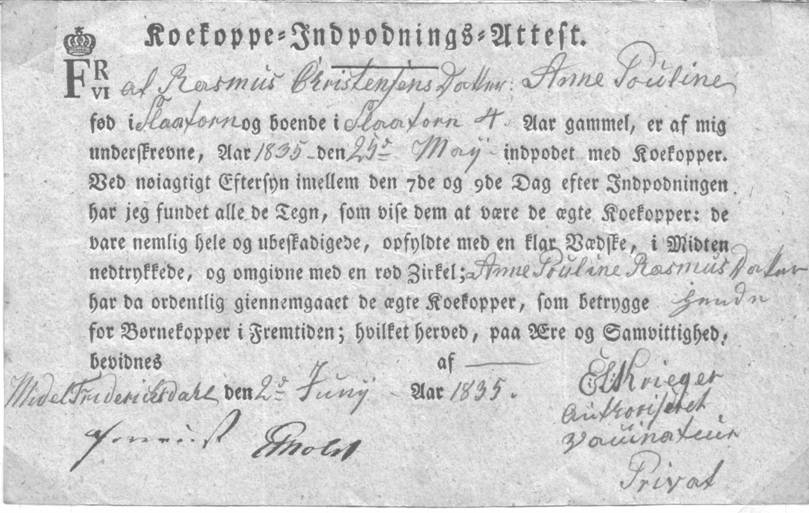 Koekoppe-Indpodnings-Attest.
F R VI af Rasmus Christensens Datter: Anne Pouline
fød i Slaatorn og boende i Slaatorn 4 Aar gammel, er af mig
underskrevne, Aar 1835 den 25d May indpodet med Koekopper.
Ved nøiagtigt Eftersyn imellem den 7de og 9de Dag efter Indpodningen
har jeg fundet alle de Tegn, som vise dem at være de ægte Koekopper: de
vare nemlig hele og ubeskadigede, opfyldte med en klar Vædske, i Midten
nedtrykkede, og omgivne med en rød Zirkel; Anne Pouline Rasmus Datter
har da ordentlig giennemgaaet de ægte Koekopper, som betrygge hende
for Børnekopper i Fremtiden; hvilket herved, paa Ære og Samvittighed,
bevidnes af
Midel Fridericksdahl den 2d Junÿ Aar 1835.
Krieger
Authoriseret
Vaccinateur
Privat